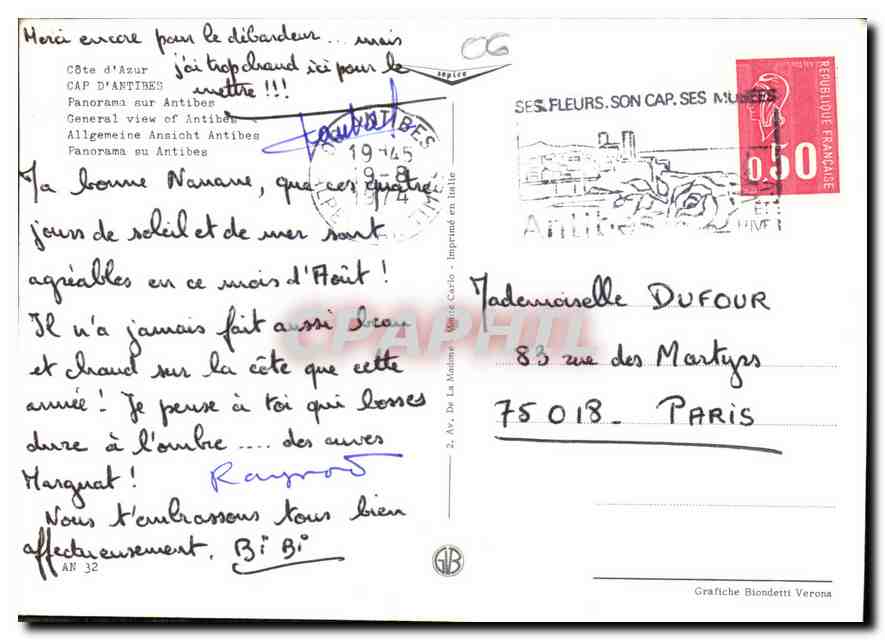 Merci encore pour le débardeur... mais
j'ai trop chaud ici pour le
mettre!!!
06
sépica
Côte d'Azur
CAP D'ANTIBES
Panorama sur Antibes
General view of Antibes
Allgemeine Ansicht Antibes
Panorama su Antibes
ANTIBES
19H45
9-8
1974
SES FLEURS. SON CAP. SES MUSÉES
Antibes
REPUBLIQUE FRANÇAISE
0,50
Ma bonne Nanane, que ces quatre
jours de soleil et de mer sont
agréables en ce mois d'Août!
Il n'a jamais fait aussi beau
et chaud sur la côte que cette
année! Je pense à toi qui bosses
dure à l'ombre .... des caves
Margnat!
Raymond
Nous t'embrassons tous bien
affectueusement. BiBi
AN 32
2, Av. De La Madone - Monte Carlo - Imprimé en Italie
Mademoiselle DUFOUR
83 rue des Martyrs
75018 - PARIS
GB
Grafiche Biondetti Verona
CPAPHIL